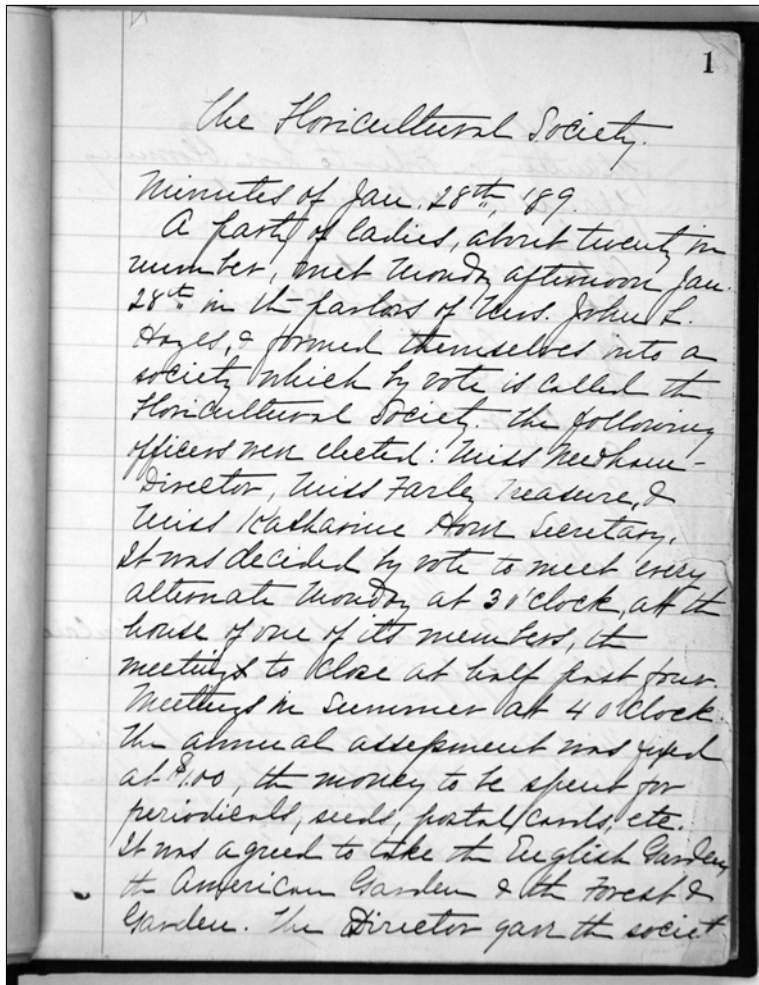 1
The Floricultural Society.
Minutes of Jan. 28th, '89.
A party of ladies, about twenty in
number, met Monday afternoon Jan.
28th in the parlors of Mrs. John L.
Hayes, & formed themselves into a
society which by vote is called the
Floricultural Society. The following
officers were elected: Miss Needham -
Director, Miss Farley Treasure, &
Miss Katharine Secretary.
It was decided by vote to meet every
alternate Monday at 3 o'clock, at the
house of one of its members, the
meetings to close at half past four.
Meetings in Summer at 4 o'clock.
The annual assessment was fixed
at $1.00, the money to be spent for
periodicals, seeds, postal cards, etc.
It was agreed to take the English Garden,
the American Garden & the Forest &
Garden. The Director gave the societ